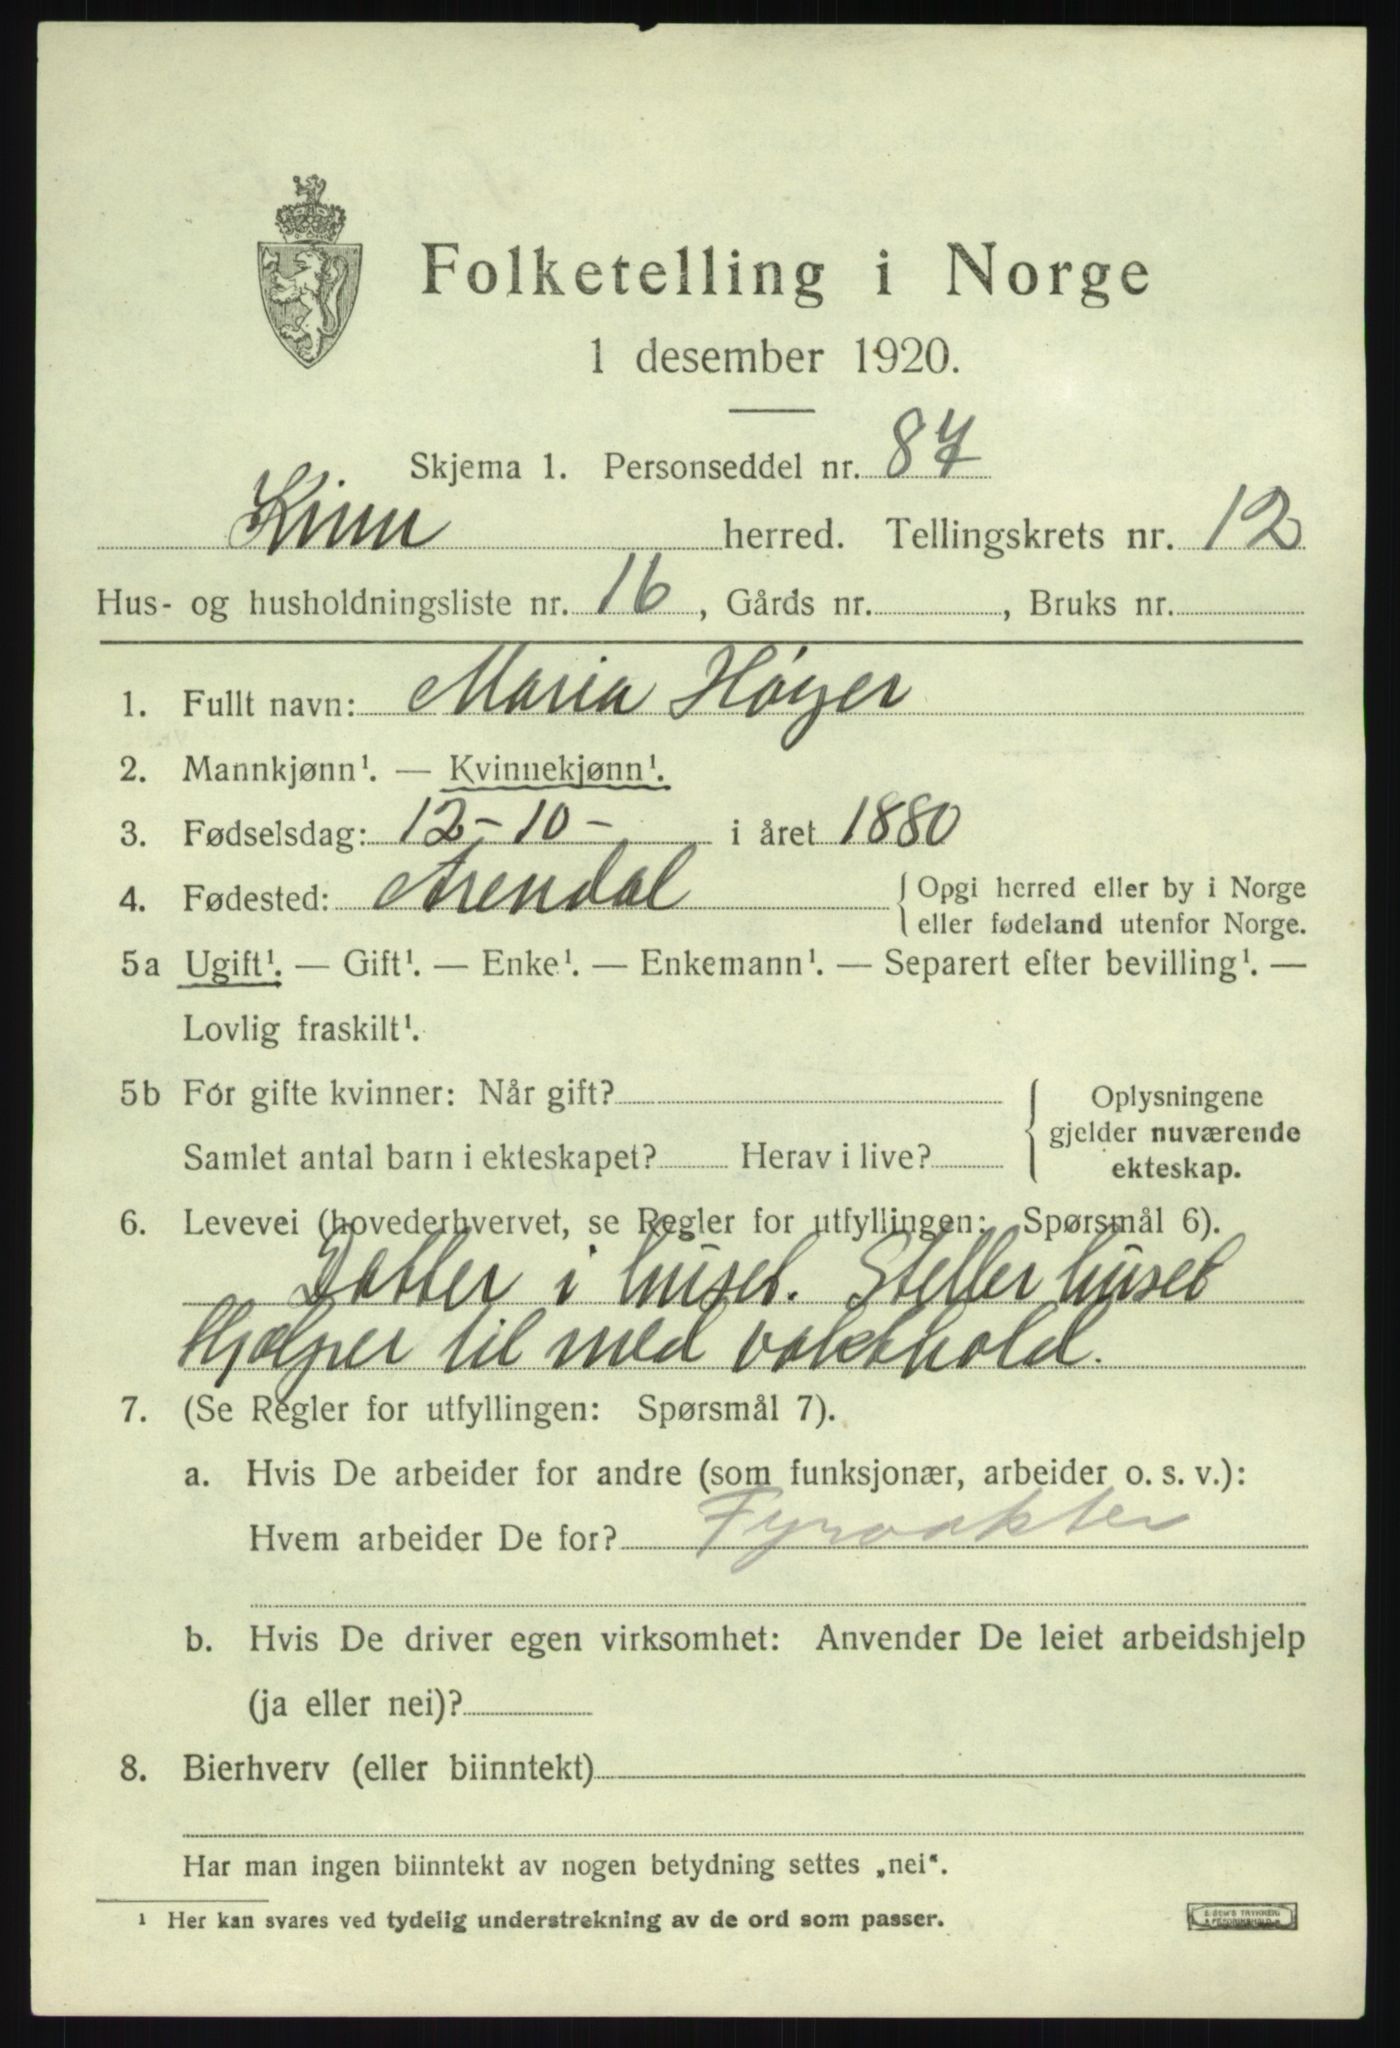 Folketelling i Norge
1 desember 1920.
Skjema 1. Personseddel nr. 87
Kinn herred. Tellingskrets nr. 12
Hus- og husholdningsliste nr. 16, Gårds nr. , Bruks nr.
1. Fullt navn: Maria Höyer
2. Mannkjønn¹. — Kvinnekjønn¹.
3. Fødselsdag: 12-10- i året 1880
4. Fødested: Arendal { Opgi herred eller by i Norge
eller fødeland utenfor Norge.
5a Ugift¹. — Gift¹. — Enke¹. — Enkemann¹. — Separert efter bevilling¹. —
Lovlig fraskilt¹.
5b For gifte kvinner: Når gift? { Oplysningene
gjelder nuværende
Samlet antal barn i ekteskapet? Herav i live?
ekteskap.
6. Levevei (hovederhvervet, se Regler for utfyllingen: Spørsmål 6).
Datter i huset. Steller huset
Hjælper til med vakthold.
7. (Se Regler for utfyllingen: Spørsmål 7).
a. Hvis De arbeider for andre (som funksjonær, arbeider o. s. v.):
Hvem arbeider De for? Fyrvakter
b. Hvis De driver egen virksomhet: Anvender De leiet arbeidshjelp
(ja eller nei)?
8. Bierhverv (eller biinntekt)
Har man ingen biinntekt av nogen betydning settes „nei“.
¹ Her kan svares ved tydelig understrekning av de ord som passer.
E. SEM'S TRYKKERI
FREDRIKSHALD